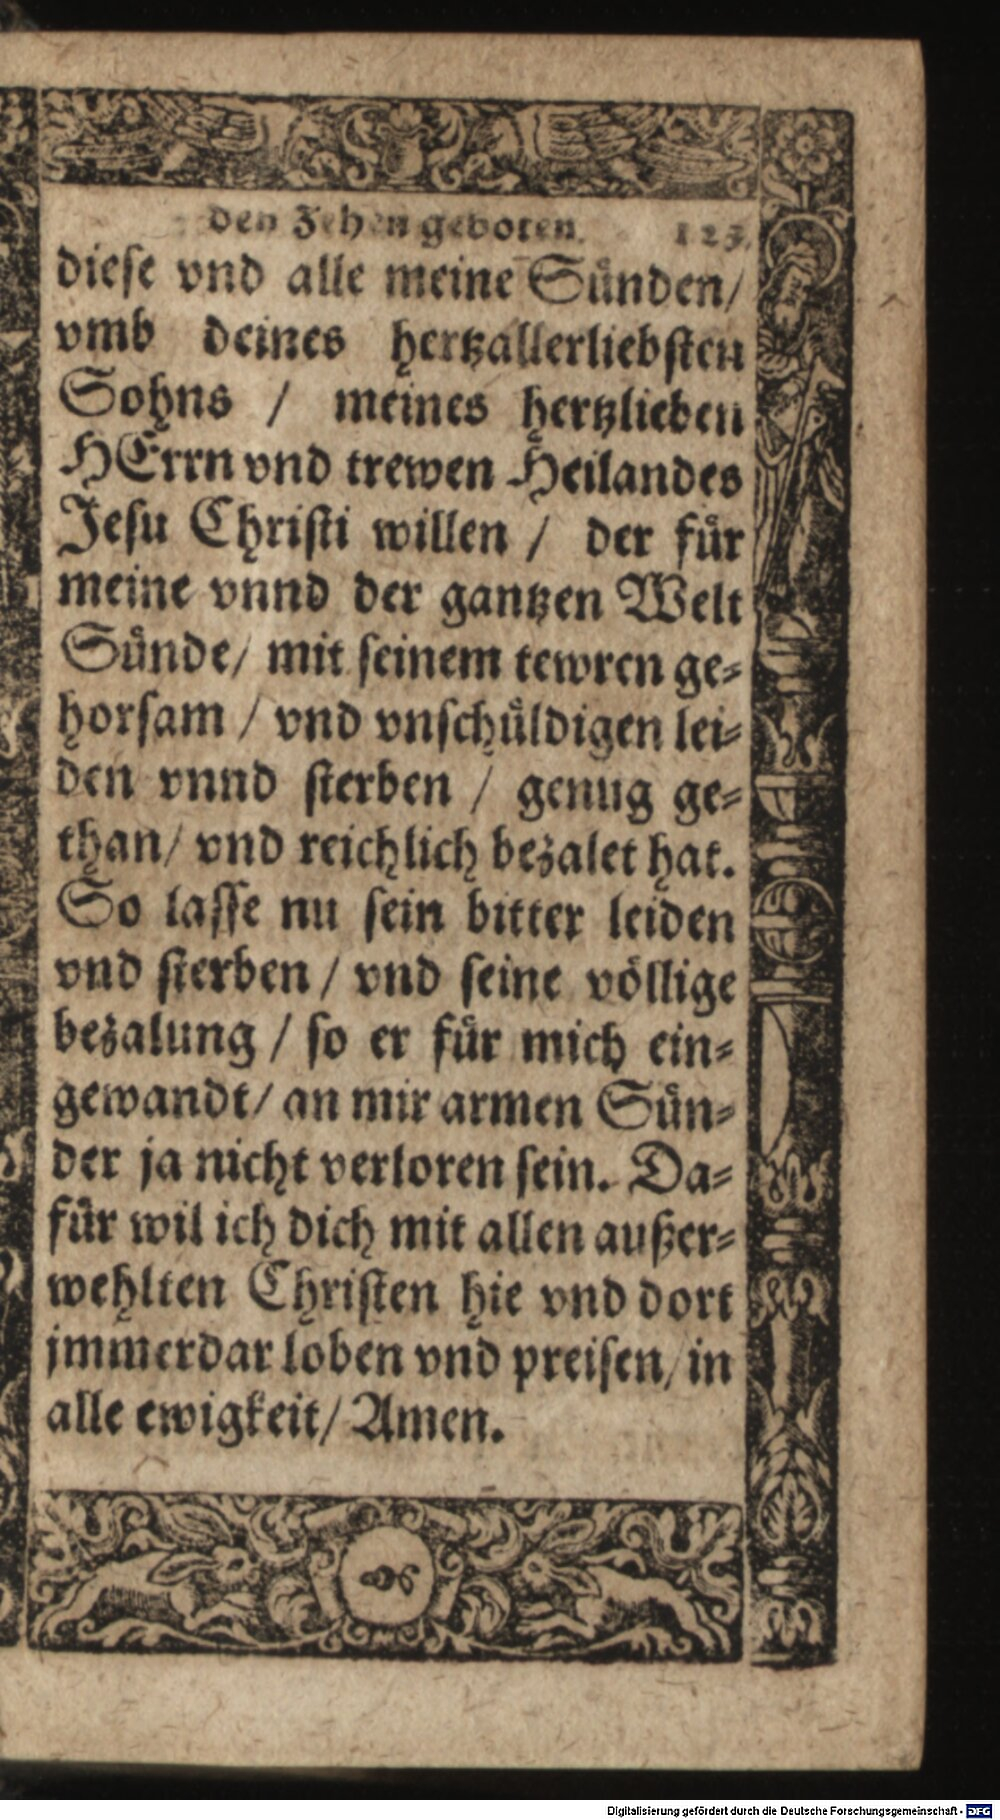 den Zehen geboten. 123.
diese vnd alle meine Sünden/
vmb deines hertzallerliebsten
Sohns / meines hertzlieben
HErrn vnd trewen Heilandes
Jesu Christi willen / der für
meine vnnd der gantzen Welt
Sünde/ mit seinem tewren ge-
horsam / vnd vnschüldigen lei-
den vnnd sterben / genug ge-
than/ vnd reichlich bezalet hat.
So lasse nu sein bitter leiden
vnd sterben / vnd seine völlige
bezalung / so er für mich ein-
gewandt/ an mir armen Sün-
der ja nicht verloren sein. Da-
für wil ich dich mit allen außer-
wehlten Christen hie vnd dort
jmmerdar loben vnd preisen/ in
alle ewigkeit/ Amen.
Digitalisierung gefördert durch die Deutsche Forschungsgemeinschaft - DFG